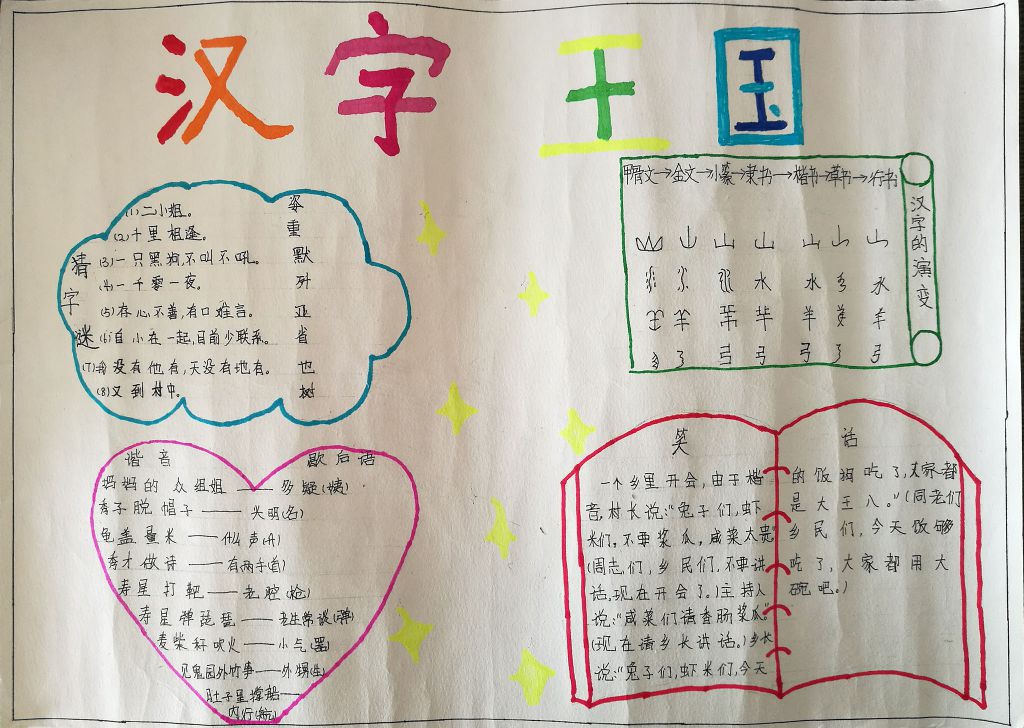 汉字王国
猜字谜
(1)二小姐。 姿
(2)千里相逢。 重
(3)一只黑狗,不叫不吼。 默
(4)一千零一夜。 歼
(5)存心不善,有口难言。 亚
(6)自小在一起,目前少联系。 省
(7)我没有他有,天没有地有。 也
(8)又到村中。 树
甲骨文→金文→小篆→隶书→楷书→草书→行书
汉字的演变
山 山 山 山 山
水 水 水
羊 羊 羊
弓 弓 弓 弓
谐音 歇后语
妈妈的众姐姐——多疑(姨)
秀子脱帽子——头明(名)
龟盖量米——什么声(升)
秀才做诗——有两手(首)
寿星打靶——老腔(枪)
寿星弹琵琶——老生常谈(弹)
麦柴秆吹火——小气(器)
见鬼园外竹事——外甥(生)
肚子里撑船——
内行(航)
笑话
一个乡里开会,由于楷
音,村长说:“兔子们,虾
米们,不要浆瓜,咸菜太贵”
(同志们,乡民们,不要讲
话,现在开会了。)主持人
说:“咸菜们请香肠浆瓜”
(现在请乡长讲话。)乡长
说:“兔子们,虾米们,今天
的饭狗吃了,大家都
是大王八。”(同老们
乡民们,今天饭够
吃了,大家都用大
碗吧。)